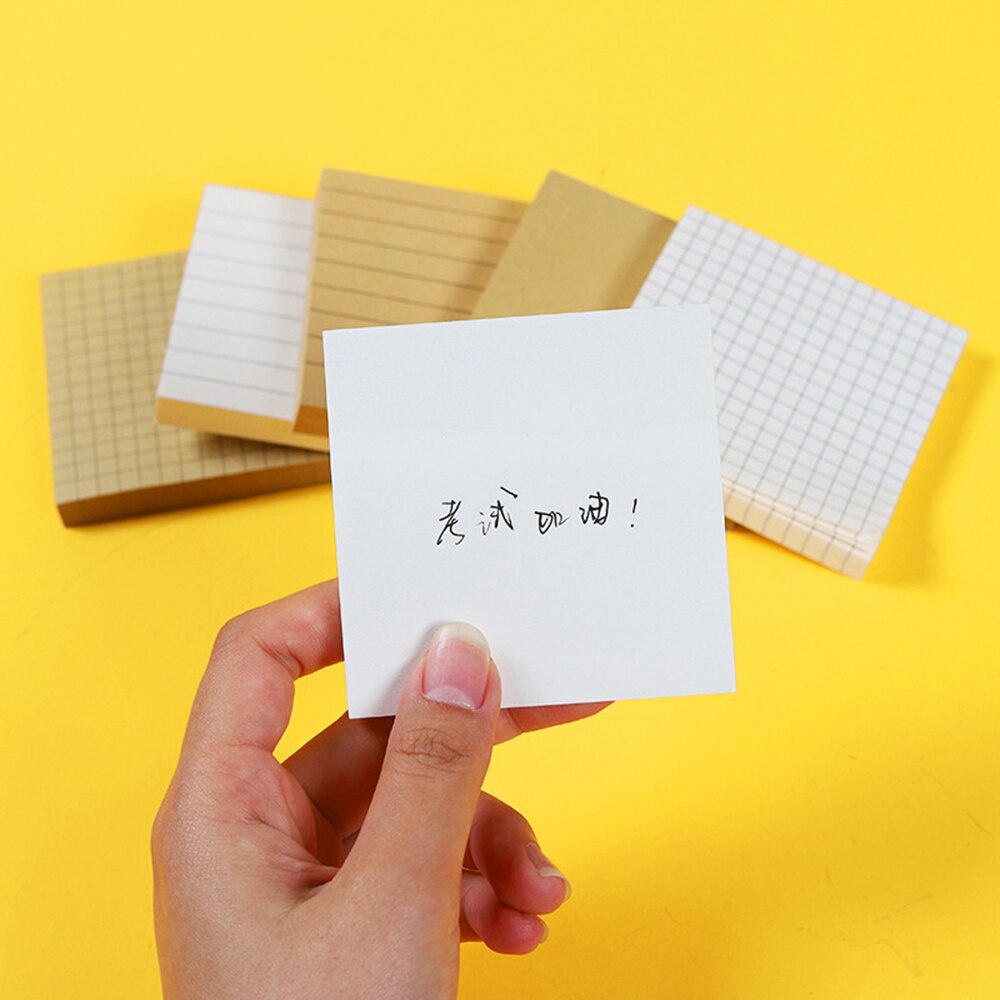 考试加油！